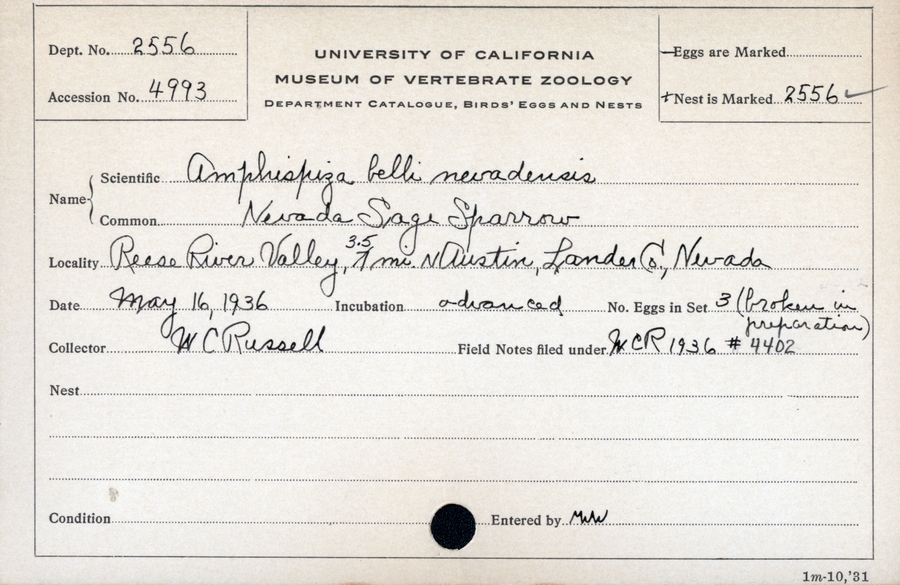 Dept. No. 2556
Accession No. 4993
UNIVERSITY OF CALIFORNIA
MUSEUM OF VERTEBRATE ZOOLOGY
DEPARTMENT CATALOGUE, BIRDS' EGGS AND NESTS
Eggs are Marked
Nest is Marked 2556 ✓
Name
Scientific Amphispiza belli nevadensis
Common Nevada Sage Sparrow
3.5
Locality Reese River Valley, 7 mi. N Austin, Lander Co., Nevada
Date May 16, 1936 Incubation advanced No. Eggs in Set 3 (broken in
preparation)
Collector W C Russell Field Notes filed under WCR 1936 # 4402
Nest
Condition Entered by
1m-10,'31